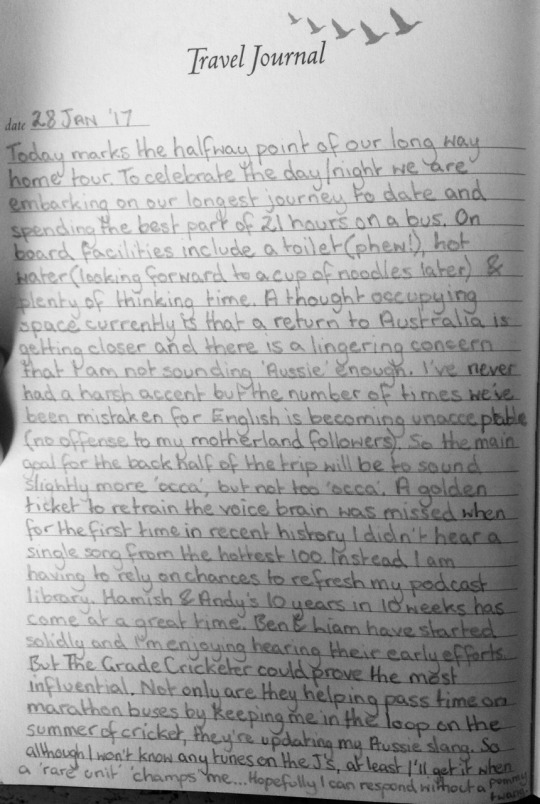 Travel Journal
date 28 JAN '17
Today marks the halfway point of our long way
home tour. To celebrate the day/night we are
embarking on our longest journey to date and
spending the best part of 21 hours on a bus. On
board facilities include a toilet (phew!), hot
water (looking forward to a cup of noodles later) &
plenty of thinking time. A thought occupying
space currently is that a return to Australia is
getting closer and there is a lingering concern
that I'am not sounding 'Aussie' enough. I've never
had a harsh accent but the number of times we've
been mistaken for English is becoming unacceptable
(no offense to my motherland followers). So the main
goal for the back half of the trip will be to sound
slightly more 'occa', but not too 'occa'. A golden
ticket to retrain the voice brain was missed when
for the first time in recent history I didn't hear a
single song from the hottest 100. Instead I am
having to rely on chances to refresh my podcast
library. Hamish & Andy's 10 years in 10 weeks has
come at a great time. Ben & Liam have started
solidly and I'm enjoying hearing their early efforts.
But The Grade Cricketer could prove the most
influential. Not only are they helping pass time on
marathon buses by keeping me in the loop on the
summer of cricket, they're updating my Aussie slang. So
although I won't know any tunes on the J's, at least I'll get it when
a 'rare unit' 'champs' me... Hopefully I can respond without a pommy
twang.